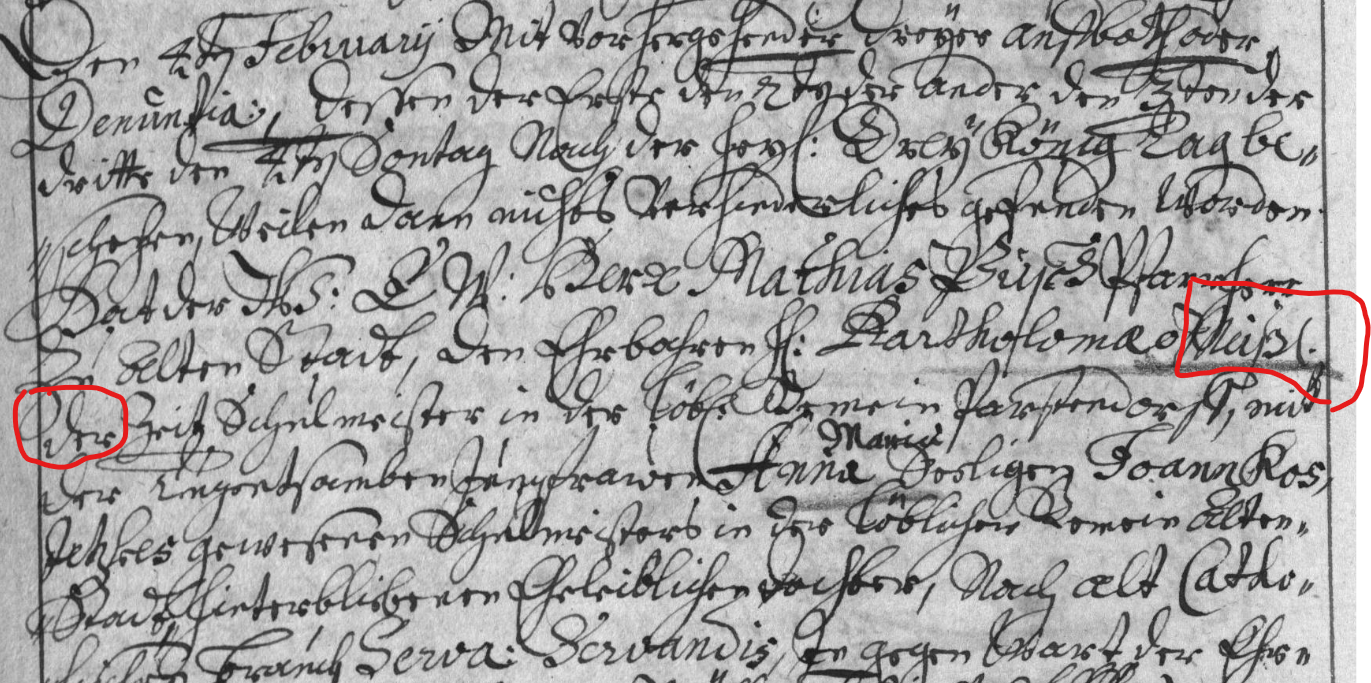 Den 4ten Februarij Mit vorhergehender dreyer auffboth oder
Denuntia:, dessen der Erste den 2ten der ander den 3ten der
dritte den 4ten Sontag Nach der heyl: Drey König Tag be„
„schehen, Weilen dann nichts verhinderliches gefunden worden
Hat der E W: Herr Mathias Pfarrherr
Zu Alten Stadt, den Ehrbahren H: Bartholomæo
der Zeit Schulmeister in der löbl: Gemein mit
der tugentsamben Jungfrawen Anna Maria Seeligen Joann Kos„
gewesenen Schulmeisters in der löblichen Gemein Alten„
„Stadt, hinterbliebenen Eheleiblichen dochter, Nach alt Catho„
brauch Serva: Servandis, In gegen Wart der Ehrn